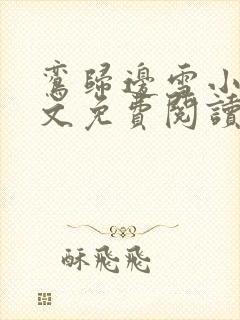 鸞歸邊雪小
文免費閱讀
酥飛飛